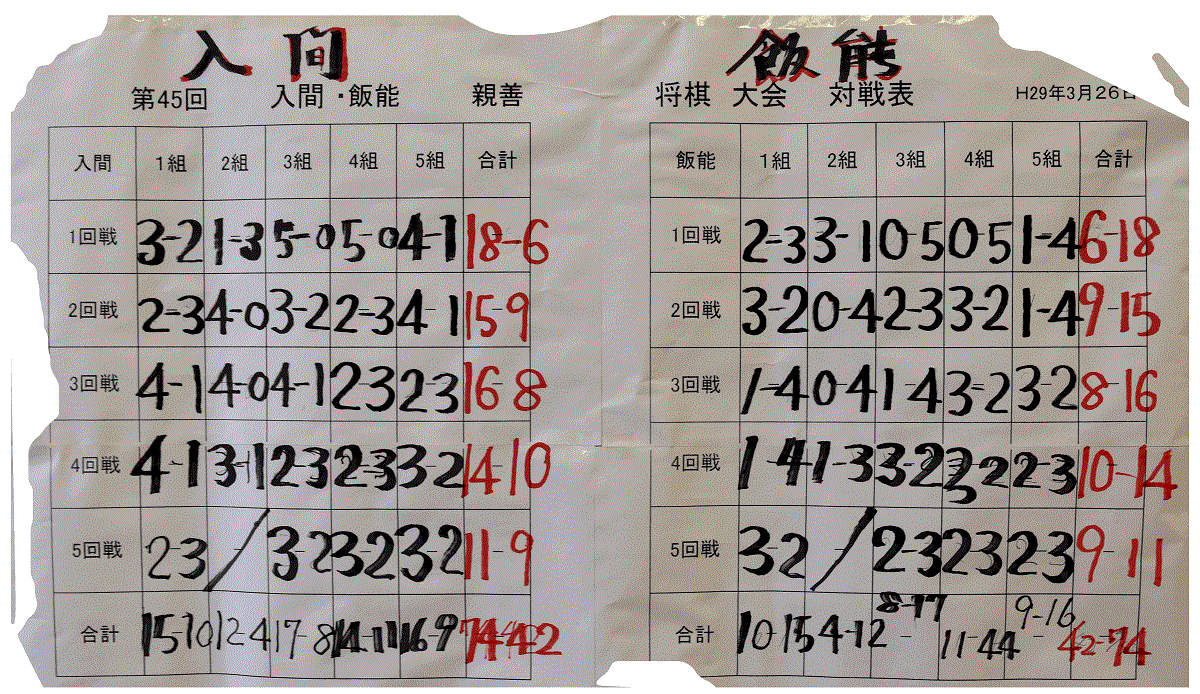 入間 飯能
第45回 入間・飯能 親善 将棋 大会 対戦表 H29年3月26日
入間 1組 2組 3組 4組 5組 合計
1回戦 3-2 1-3 5-0 5-0 4-1 18-6
2回戦 2-3 4-0 3-2 2-3 4-1 15-9
3回戦 4-1 4-0 4-1 2-3 2-3 16-8
4回戦 4-1 3-1 2-3 2-3 3-2 14-10
5回戦 2-3 / 3-2 3-2 3-2 11-9
合計 15-10 12-4 17-8 14-11 16-9 74-42
飯能 1組 2組 3組 4組 5組 合計
1回戦 2-3 3-1 0-5 0-5 1-4 6-18
2回戦 3-2 0-4 2-3 3-2 1-4 9-15
3回戦 1-4 0-4 1-4 3-2 3-2 8-16
4回戦 1-4 1-3 3-2 3-2 2-3 10-14
5回戦 3-2 / 2-3 2-3 2-3 9-11
合計 10-15 4-12 8-17 11-44 9-16 42-74